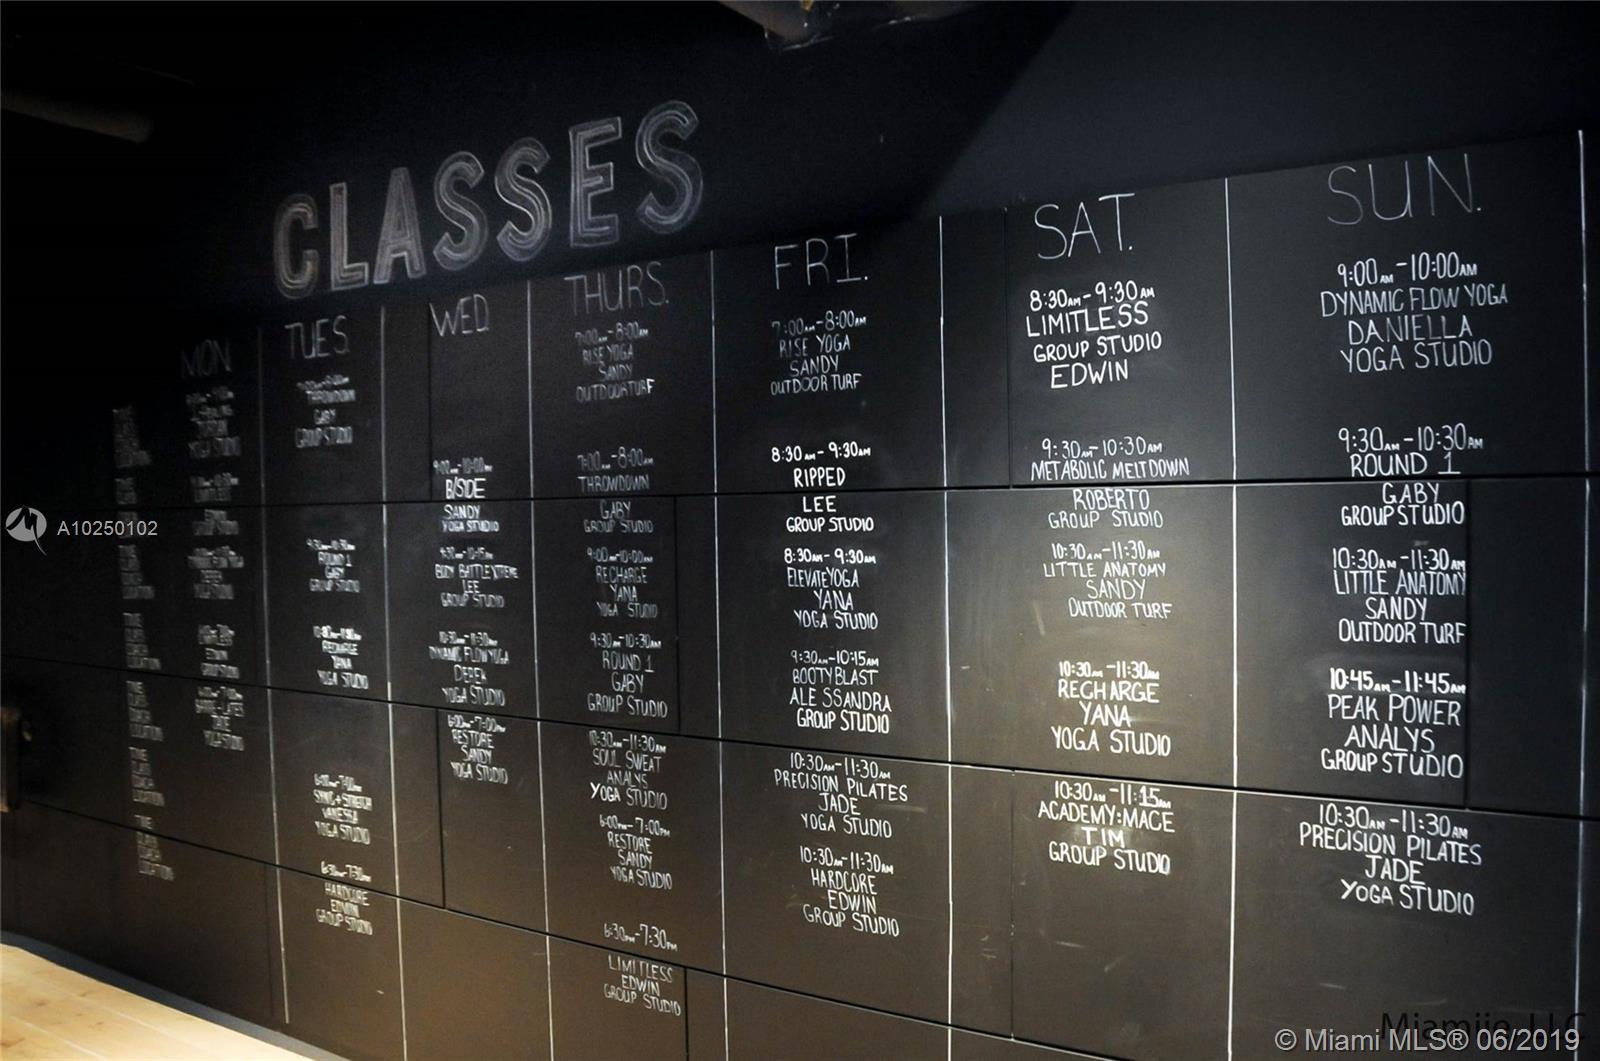 CLASSES
MON
YOGA STUDIO
GROUP STUDIO
YOGA STUDIO
EDWIN
GROUP STUDIO
YOGA STUDIO
TIME
CLASS
COACH
LOCATION
TIME
CLASS
COACH
LOCATION
TIME
CLASS
COACH
LOCATION
TUES.
THROWDOWN
GABY
GROUP STUDIO
ROUND 1
GABY
GROUP STUDIO
RECHARGE
YANA
YOGA STUDIO
6:00PM-7:00PM
SYNC+STRETCH
VANESSA
YOGA STUDIO
6:30PM-7:30PM
HARDCORE
EDWIN
GROUP STUDIO
WED.
9:00AM-10:00AM
B/SIDE
SANDY
YOGA STUDIO
9:30AM-10:15AM
BODY BATTLE XTREME
LEE
GROUP STUDIO
10:30AM-11:30AM
DYNAMIC FLOW YOGA
DEREK
YOGA STUDIO
6:00PM-7:00PM
RESTORE
SANDY
YOGA STUDIO
THURS.
7:00AM-8:00AM
RISE YOGA
SANDY
OUTDOOR TURF
7:00AM-8:00AM
THROWDOWN
GABY
GROUP STUDIO
9:00AM-10:00AM
RECHARGE
YANA
YOGA STUDIO
9:30AM-10:30AM
ROUND 1
GABY
GROUP STUDIO
10:30AM-11:30AM
SOUL SWEAT
ANALYS
YOGA STUDIO
6:00PM-7:00PM
RESTORE
SANDY
YOGA STUDIO
6:30PM-7:30PM
LIMITLESS
EDWIN
GROUP STUDIO
FRI.
7:00AM-8:00AM
RISE YOGA
SANDY
OUTDOOR TURF
8:30AM-9:30AM
RIPPED
LEE
GROUP STUDIO
8:30AM-9:30AM
ELEVATE YOGA
YANA
YOGA STUDIO
9:30AM-10:15AM
BOOTY BLAST
ALESSANDRA
GROUP STUDIO
10:30AM-11:30AM
PRECISION PILATES
JADE
YOGA STUDIO
10:30AM-11:30AM
HARDCORE
EDWIN
GROUP STUDIO
SAT.
8:30AM-9:30AM
LIMITLESS
GROUP STUDIO
EDWIN
9:30AM-10:30AM
METABOLIC MELTDOWN
ROBERTO
GROUP STUDIO
10:30AM-11:30AM
LITTLE ANATOMY
SANDY
OUTDOOR TURF
10:30AM-11:30AM
RECHARGE
YANA
YOGA STUDIO
10:30AM-11:15AM
ACADEMY:MACE
TIM
GROUP STUDIO
SUN.
9:00AM-10:00AM
DYNAMIC FLOW YOGA
DANIELLA
YOGA STUDIO
9:30AM-10:30AM
ROUND 1
GABY
GROUP STUDIO
10:30AM-11:30AM
LITTLE ANATOMY
SANDY
OUTDOOR TURF
10:45AM-11:45AM
PEAK POWER
ANALYS
GROUP STUDIO
10:30AM-11:30AM
PRECISION PILATES
JADE
YOGA STUDIO
A10250102
Miamiie LLC
© Miami MLS® 06/2019